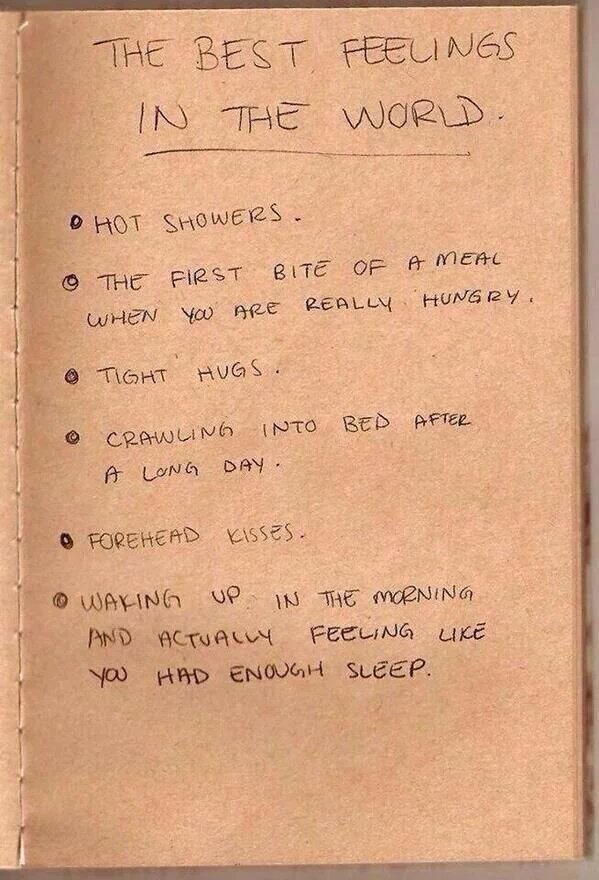 THE BEST FEELINGS
IN THE WORLD.
HOT SHOWERS.
THE FIRST BITE OF A MEAL
WHEN YOU ARE REALLY HUNGRY.
TIGHT HUGS.
CRAWLING INTO BED AFTER
A LONG DAY.
FOREHEAD KISSES.
WAKING UP IN THE MORNING
AND ACTUALLY FEELING LIKE
YOU HAD ENOUGH SLEEP.